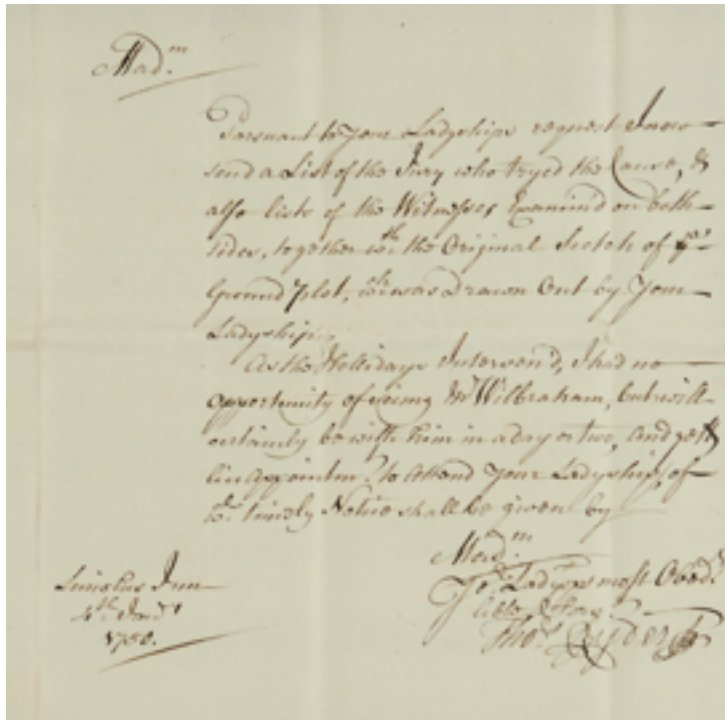 Mad.m
Pursuant to your Ladyships request I now
send a List of the Jury who tryed the Cause, &
also lists of the Witnesses Examind on both
sides, together wth. the Original Scetch of ye
Ground Plot, wch. was drawn Out by Your
Ladyship.
As the Hollidays Interven'd, I had no
opportunity of seeing Mr Wilbraham, but will
certainly be with him in a day or two, and gett
an appointmt. to Attend Your Ladyship, of
wch. timely Notice shall be given by
Mad.m
Yor. Ladyps most Obedt.
Serv.
Thos. Ryder
Lincolns Inn
4th Janry
1750.